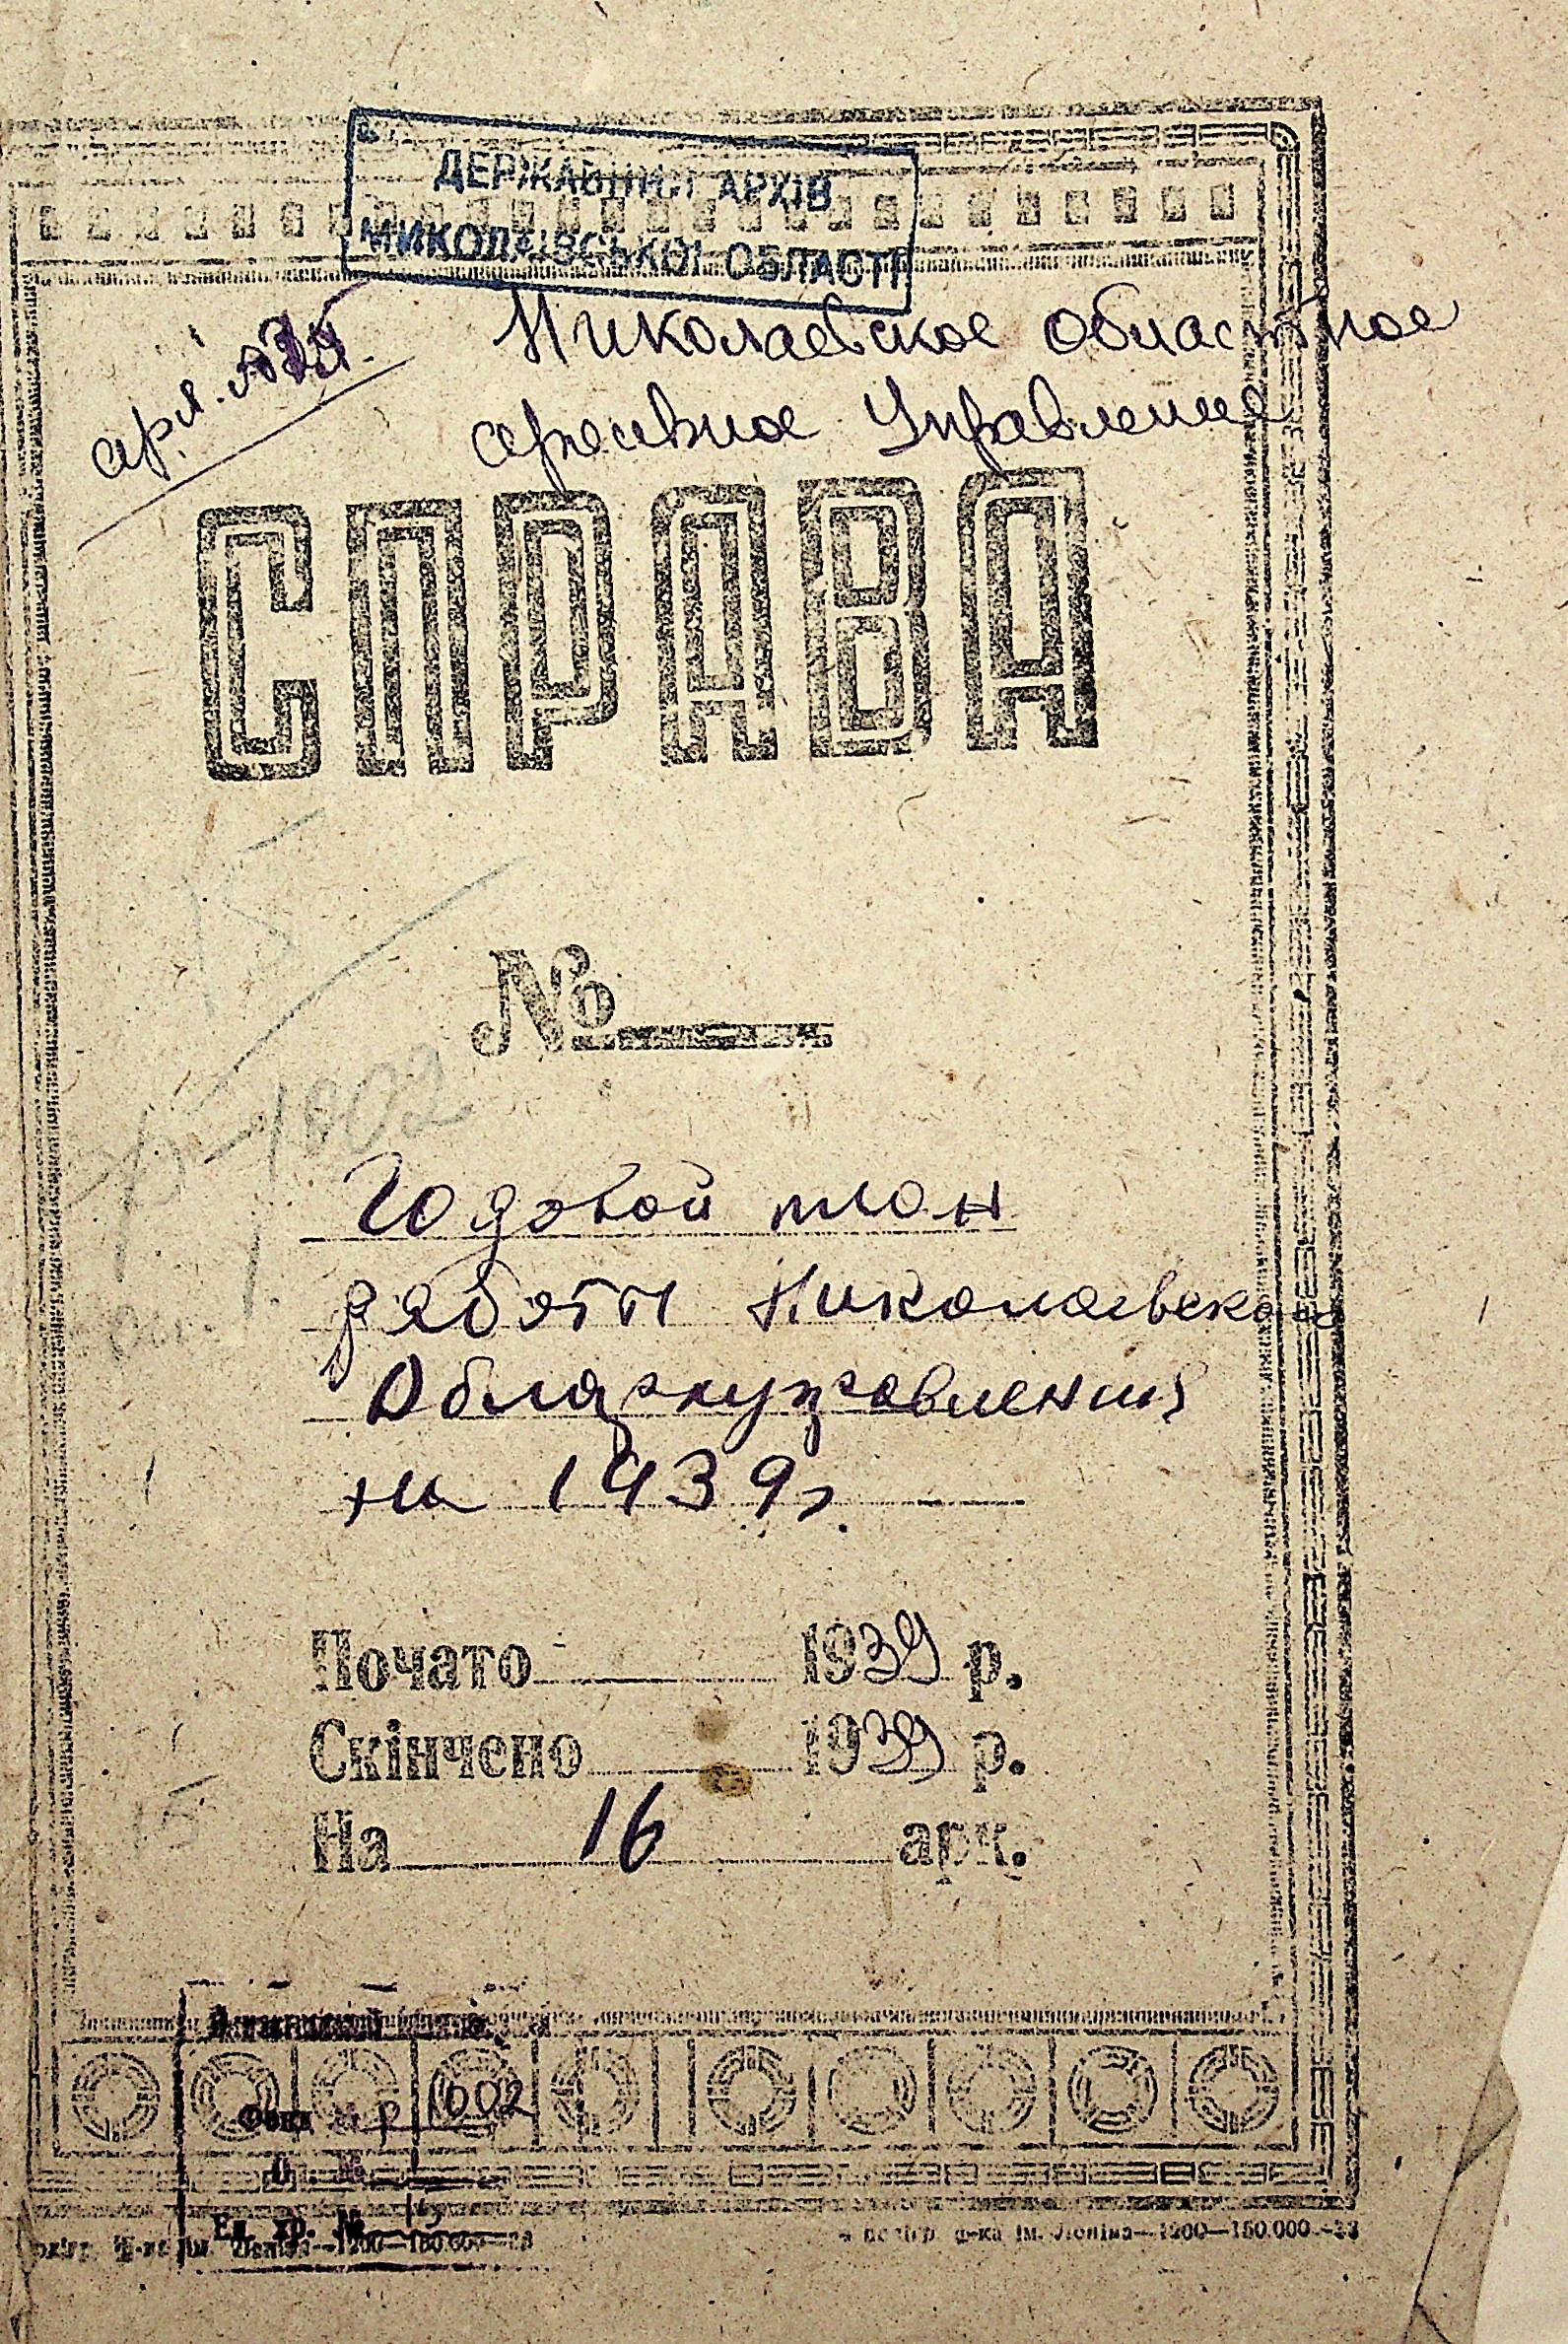 ДЕРЖАВНИЙ АРХІВ
МИКОЛАЇВСЬКОЇ ОБЛАСТІ
Николаевское областное
архивное Управление
СПРАВА
№
Р-1002
Годовой план
работы Николаевского
Облархуправления
на 1939г.
Почато 1939 р.
Скінчено 1939 р.
На 16 арк.
Фонд № Р 1002
Ед. хр. №
ім. Леніна—1200—150.000.-38